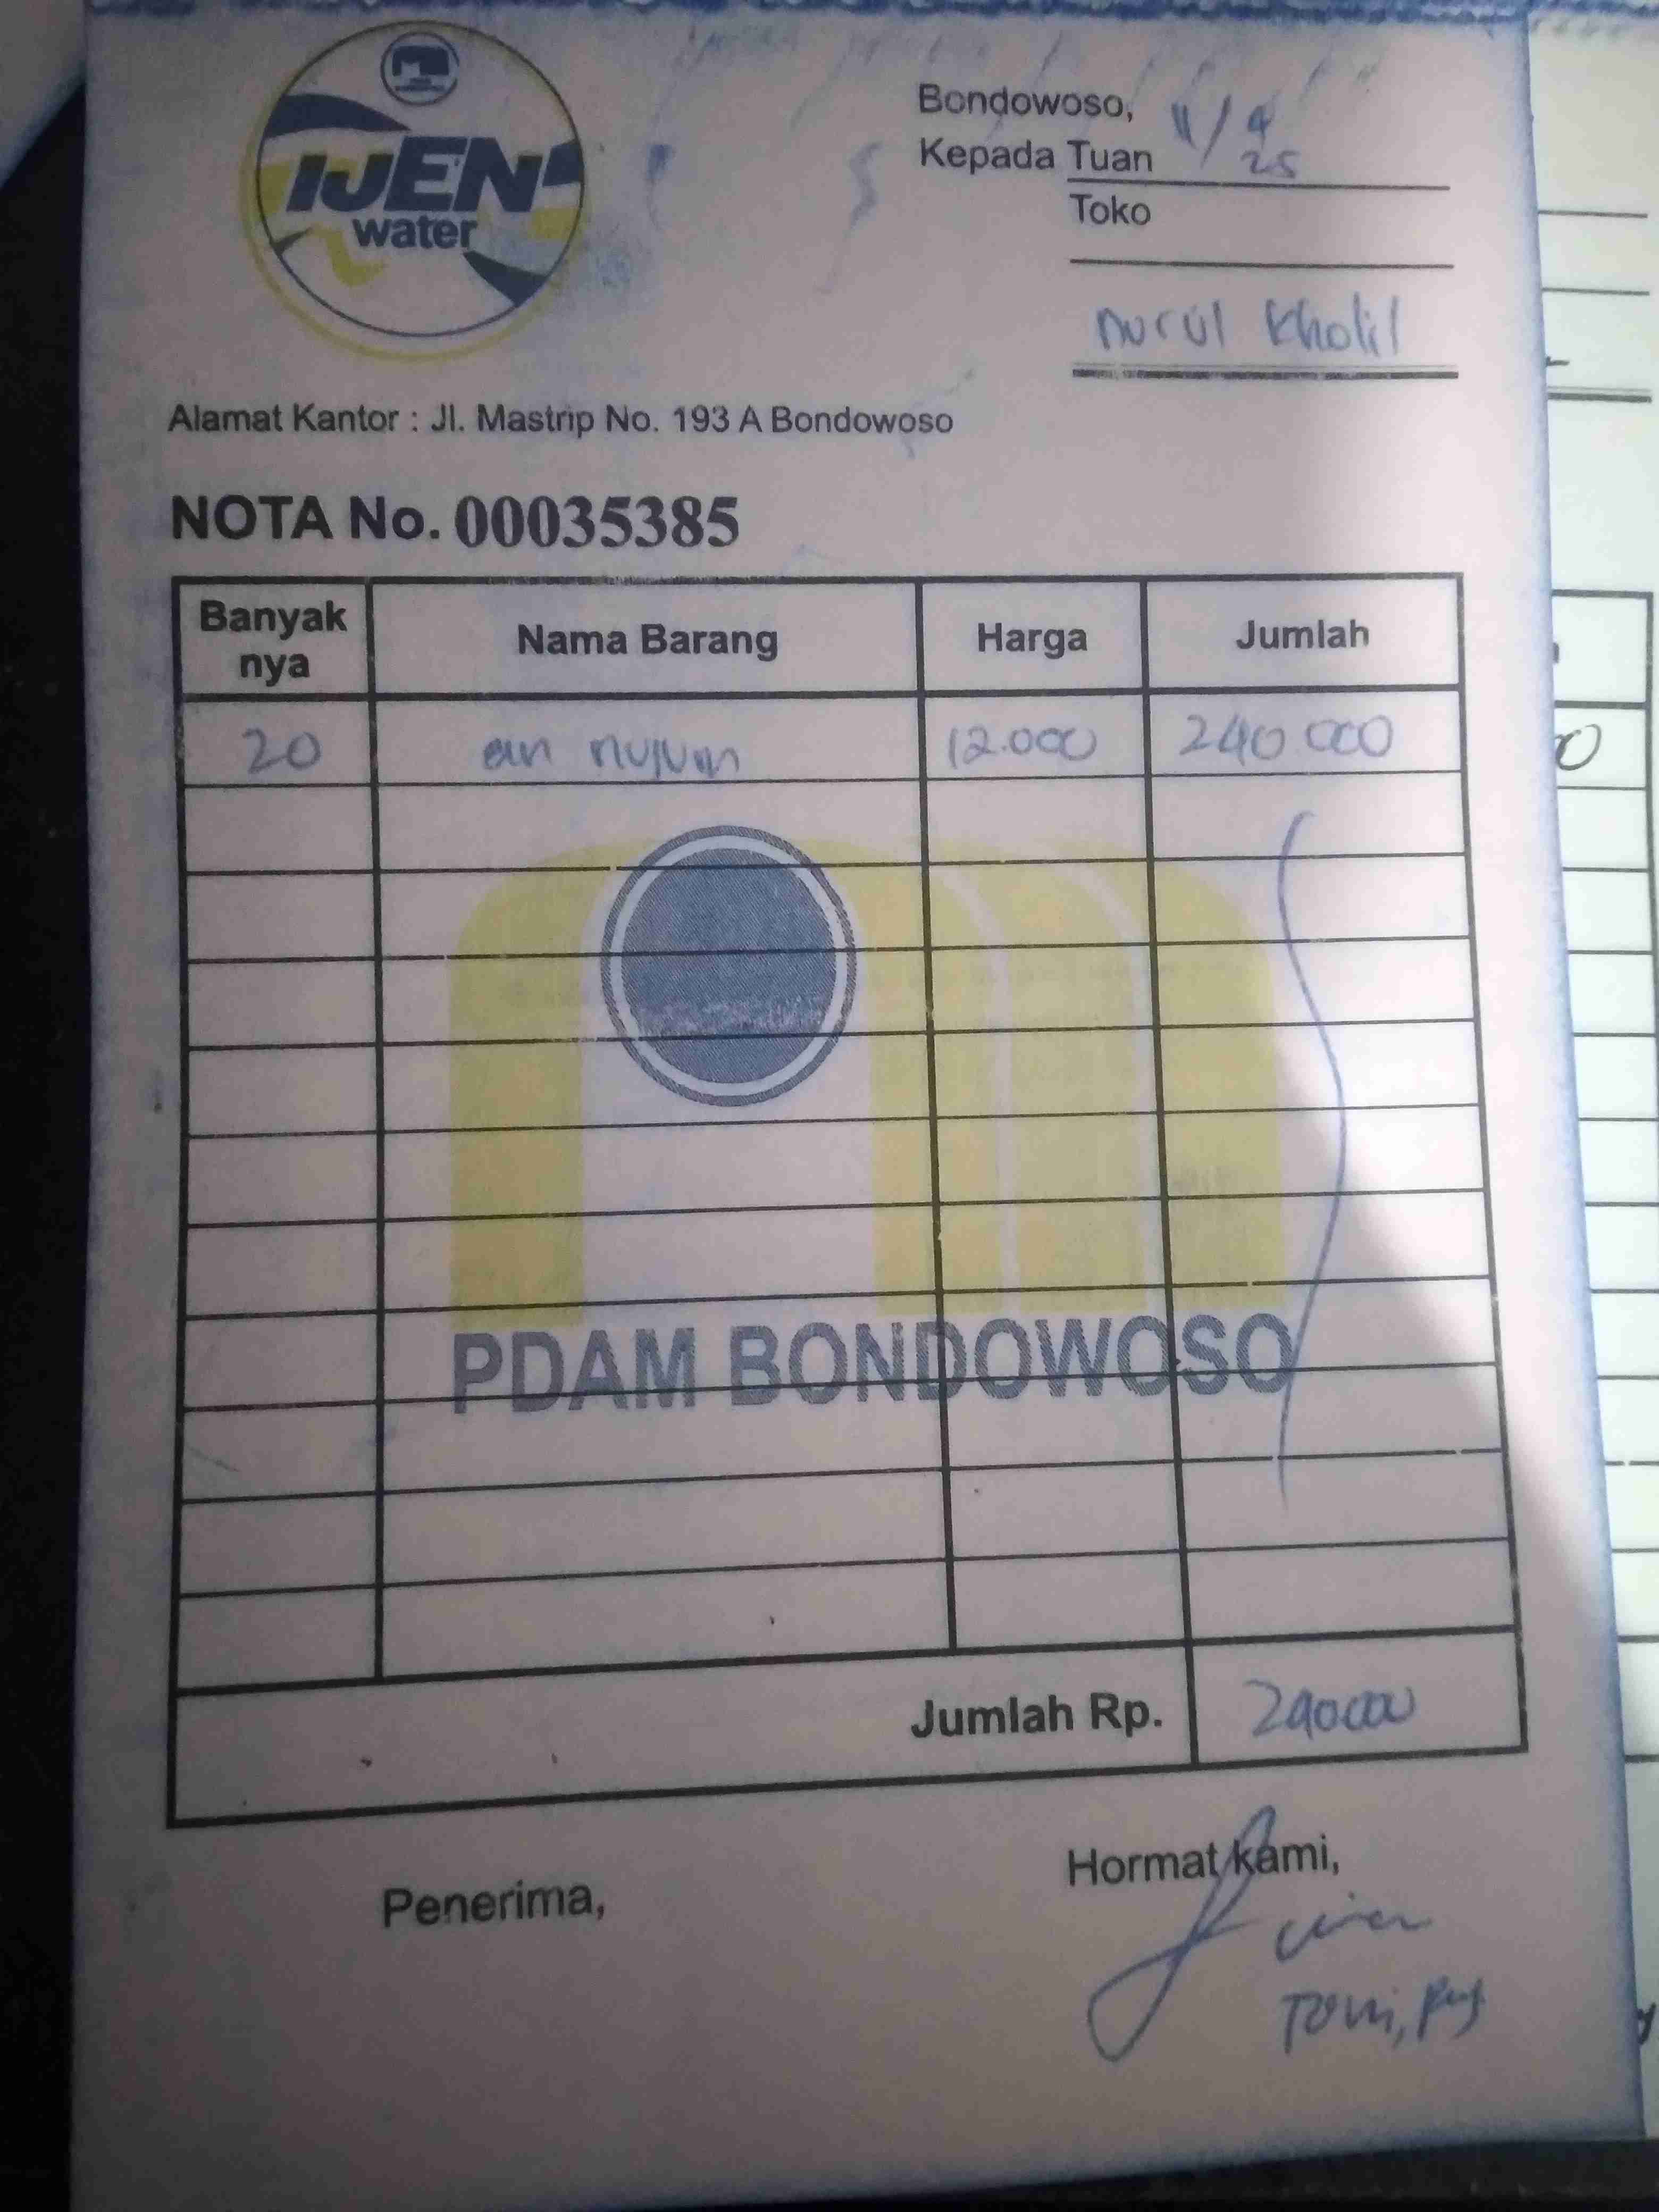 IJEN
water
Bondowoso, 11/4
25
Kepada Tuan
Toko
nurul kholil
Alamat Kantor : Jl. Mastrip No. 193 A Bondowoso
NOTA No. 00035385
Banyak nya Nama Barang Harga Jumlah
20 nujum 12.000 240 000
PDAM BONDOWOSO
Jumlah Rp. 240000
Penerima,
Hormat kami,
Toni,